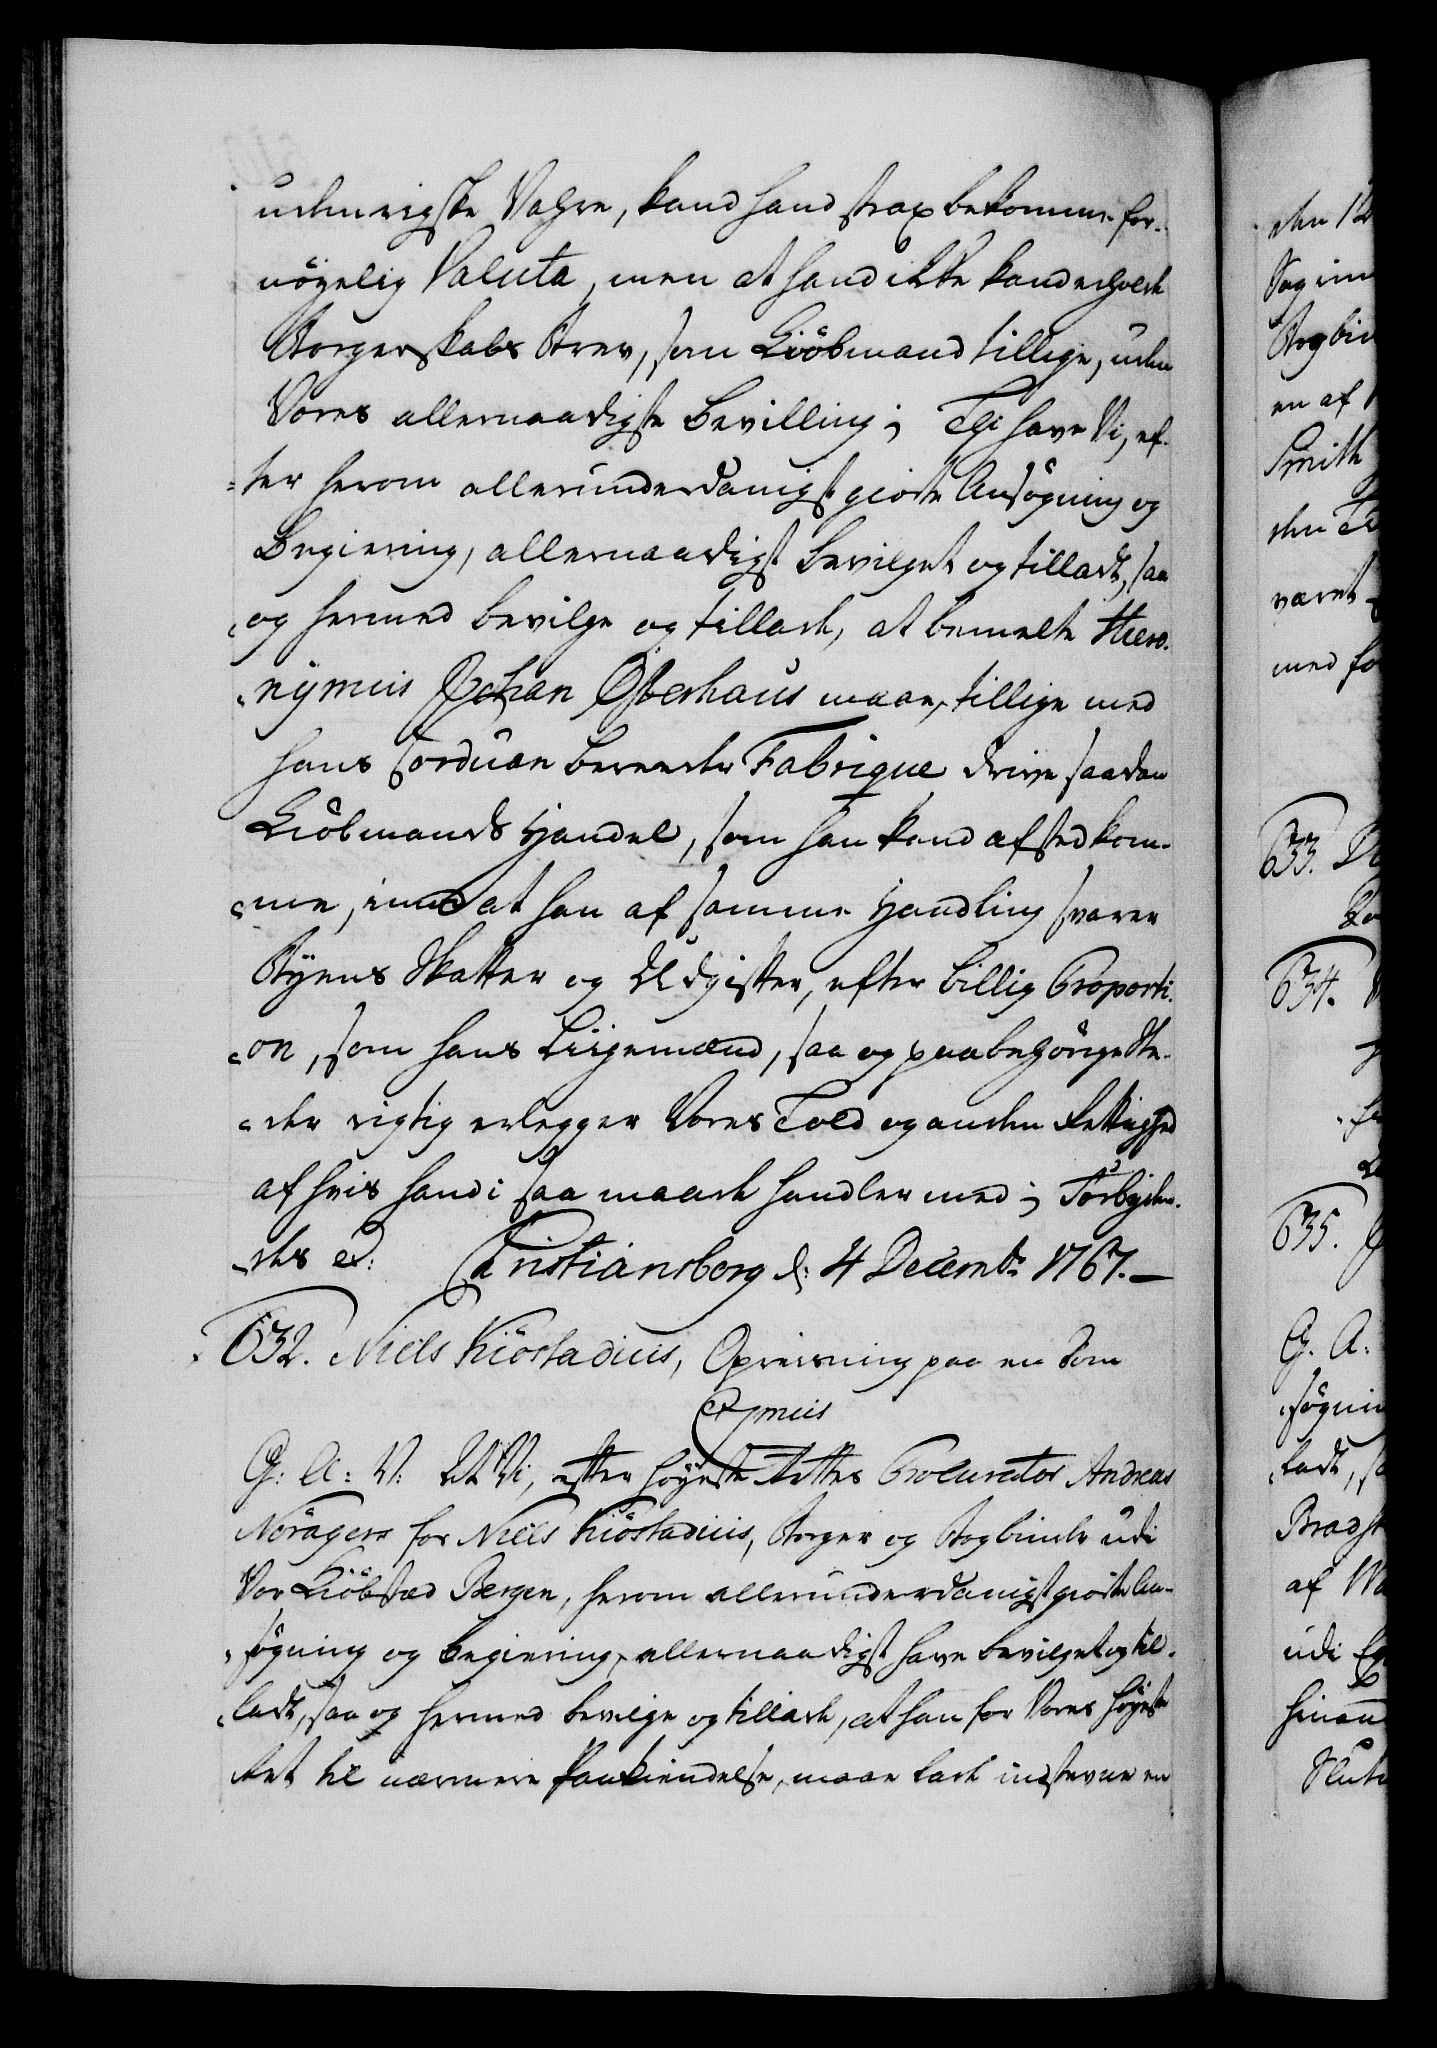 udenrigske Vahre, kand hand strax bekomme for-
nöyelig Valuta, men at hand ikke kand erholde
Borgerskabs Brev, som Kiöbmand tillige, uden
Vores allernaadigste Bevilling; Thi have Vi, ef-
ter herom allerunderdanigst giorte Ansögning og
Begiering, allernaadigst bevilget og tilladt, saa
og hermed bevilge og tillade, at bemelte Hiero-
nÿmus Johan Osterhaus maae, tillige med
hans Corduan bereeder Fabrique drive saadan
Kiöbmands Handel, som han kand afsted kom-
me, imod at han af samme Handling svarer
Byens Skatter og Udgifter, efter billig Proporti-
on, som hans Ligemænd, saa og paa behörige Ste-
der rigtig erlegger Vores Told og anden Rettighed
af hvis hand i saa maade handler med; Forbyden-
des &. Christiansborg d: 4 Decembr 1767.—
632. Niels Kiöstadius, Opreisning paa en Dom
G: A: V: At Vi, efter höyeste Rettes Procurator Andreas
Noragers for Niels Kiöstadius, Borger og Bogbinder udi
Vor Kiöbstæd Bergen, herom allerunderdanigst giorte An-
sögning og Begiering, allernaadigst have bevilget og til-
ladt, saa og hermed bevilge og tillade, at han for Vores höyeste
Ret til nærmere Paakiendelse, maae lade indstevne en
den 12
en af
Smith
været
med fo
633.
634.
635.
G. A:
sögnin
ladt, s
af
udi